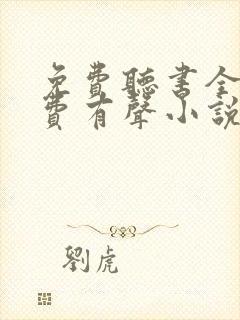 免費聽書全
費有聲小說
劉虎